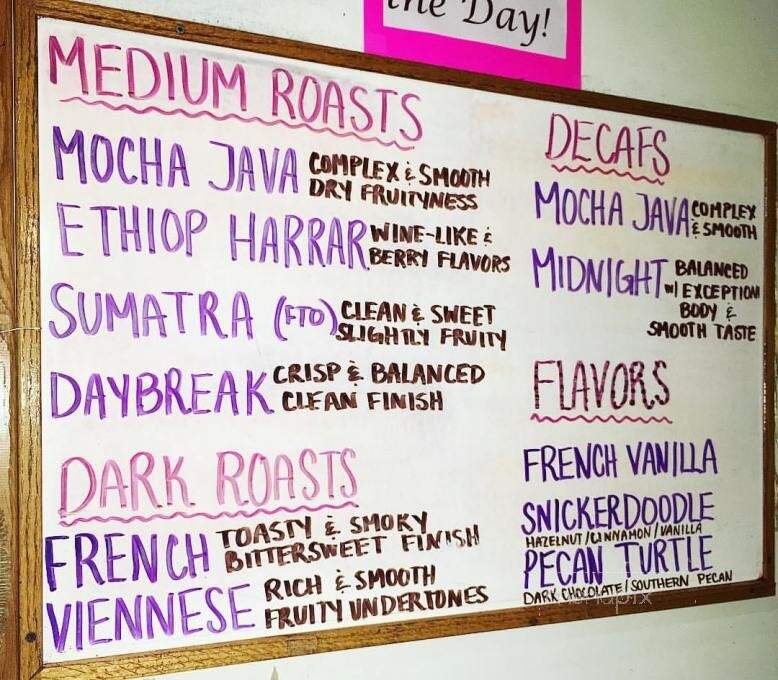 the Day!
MEDIUM ROASTS
MOCHA JAVA COMPLEX & SMOOTH
DRY FRUITYNESS
ETHIOP HARRAR WINE-LIKE &
BERRY FLAVORS
SUMATRA (FTO) CLEAN & SWEET
SLIGHTLY FRUITY
DAYBREAK CRISP & BALANCED
CLEAN FINISH
DARK ROASTS
FRENCH TOASTY & SMOKY
BITTERSWEET FINISH
VIENNESE RICH & SMOOTH
FRUITY UNDERTONES
DECAFS
MOCHA JAVA COMPLEX
& SMOOTH
MIDNIGHT BALANCED
w/ EXCEPTION
BODY &
SMOOTH TASTE
FLAVORS
FRENCH VANILLA
SNICKERDOODLE
HAZELNUT/CINNAMON/VANILLA
PECAN TURTLE
DARK CHOCOLATE/SOUTHERN PECAN